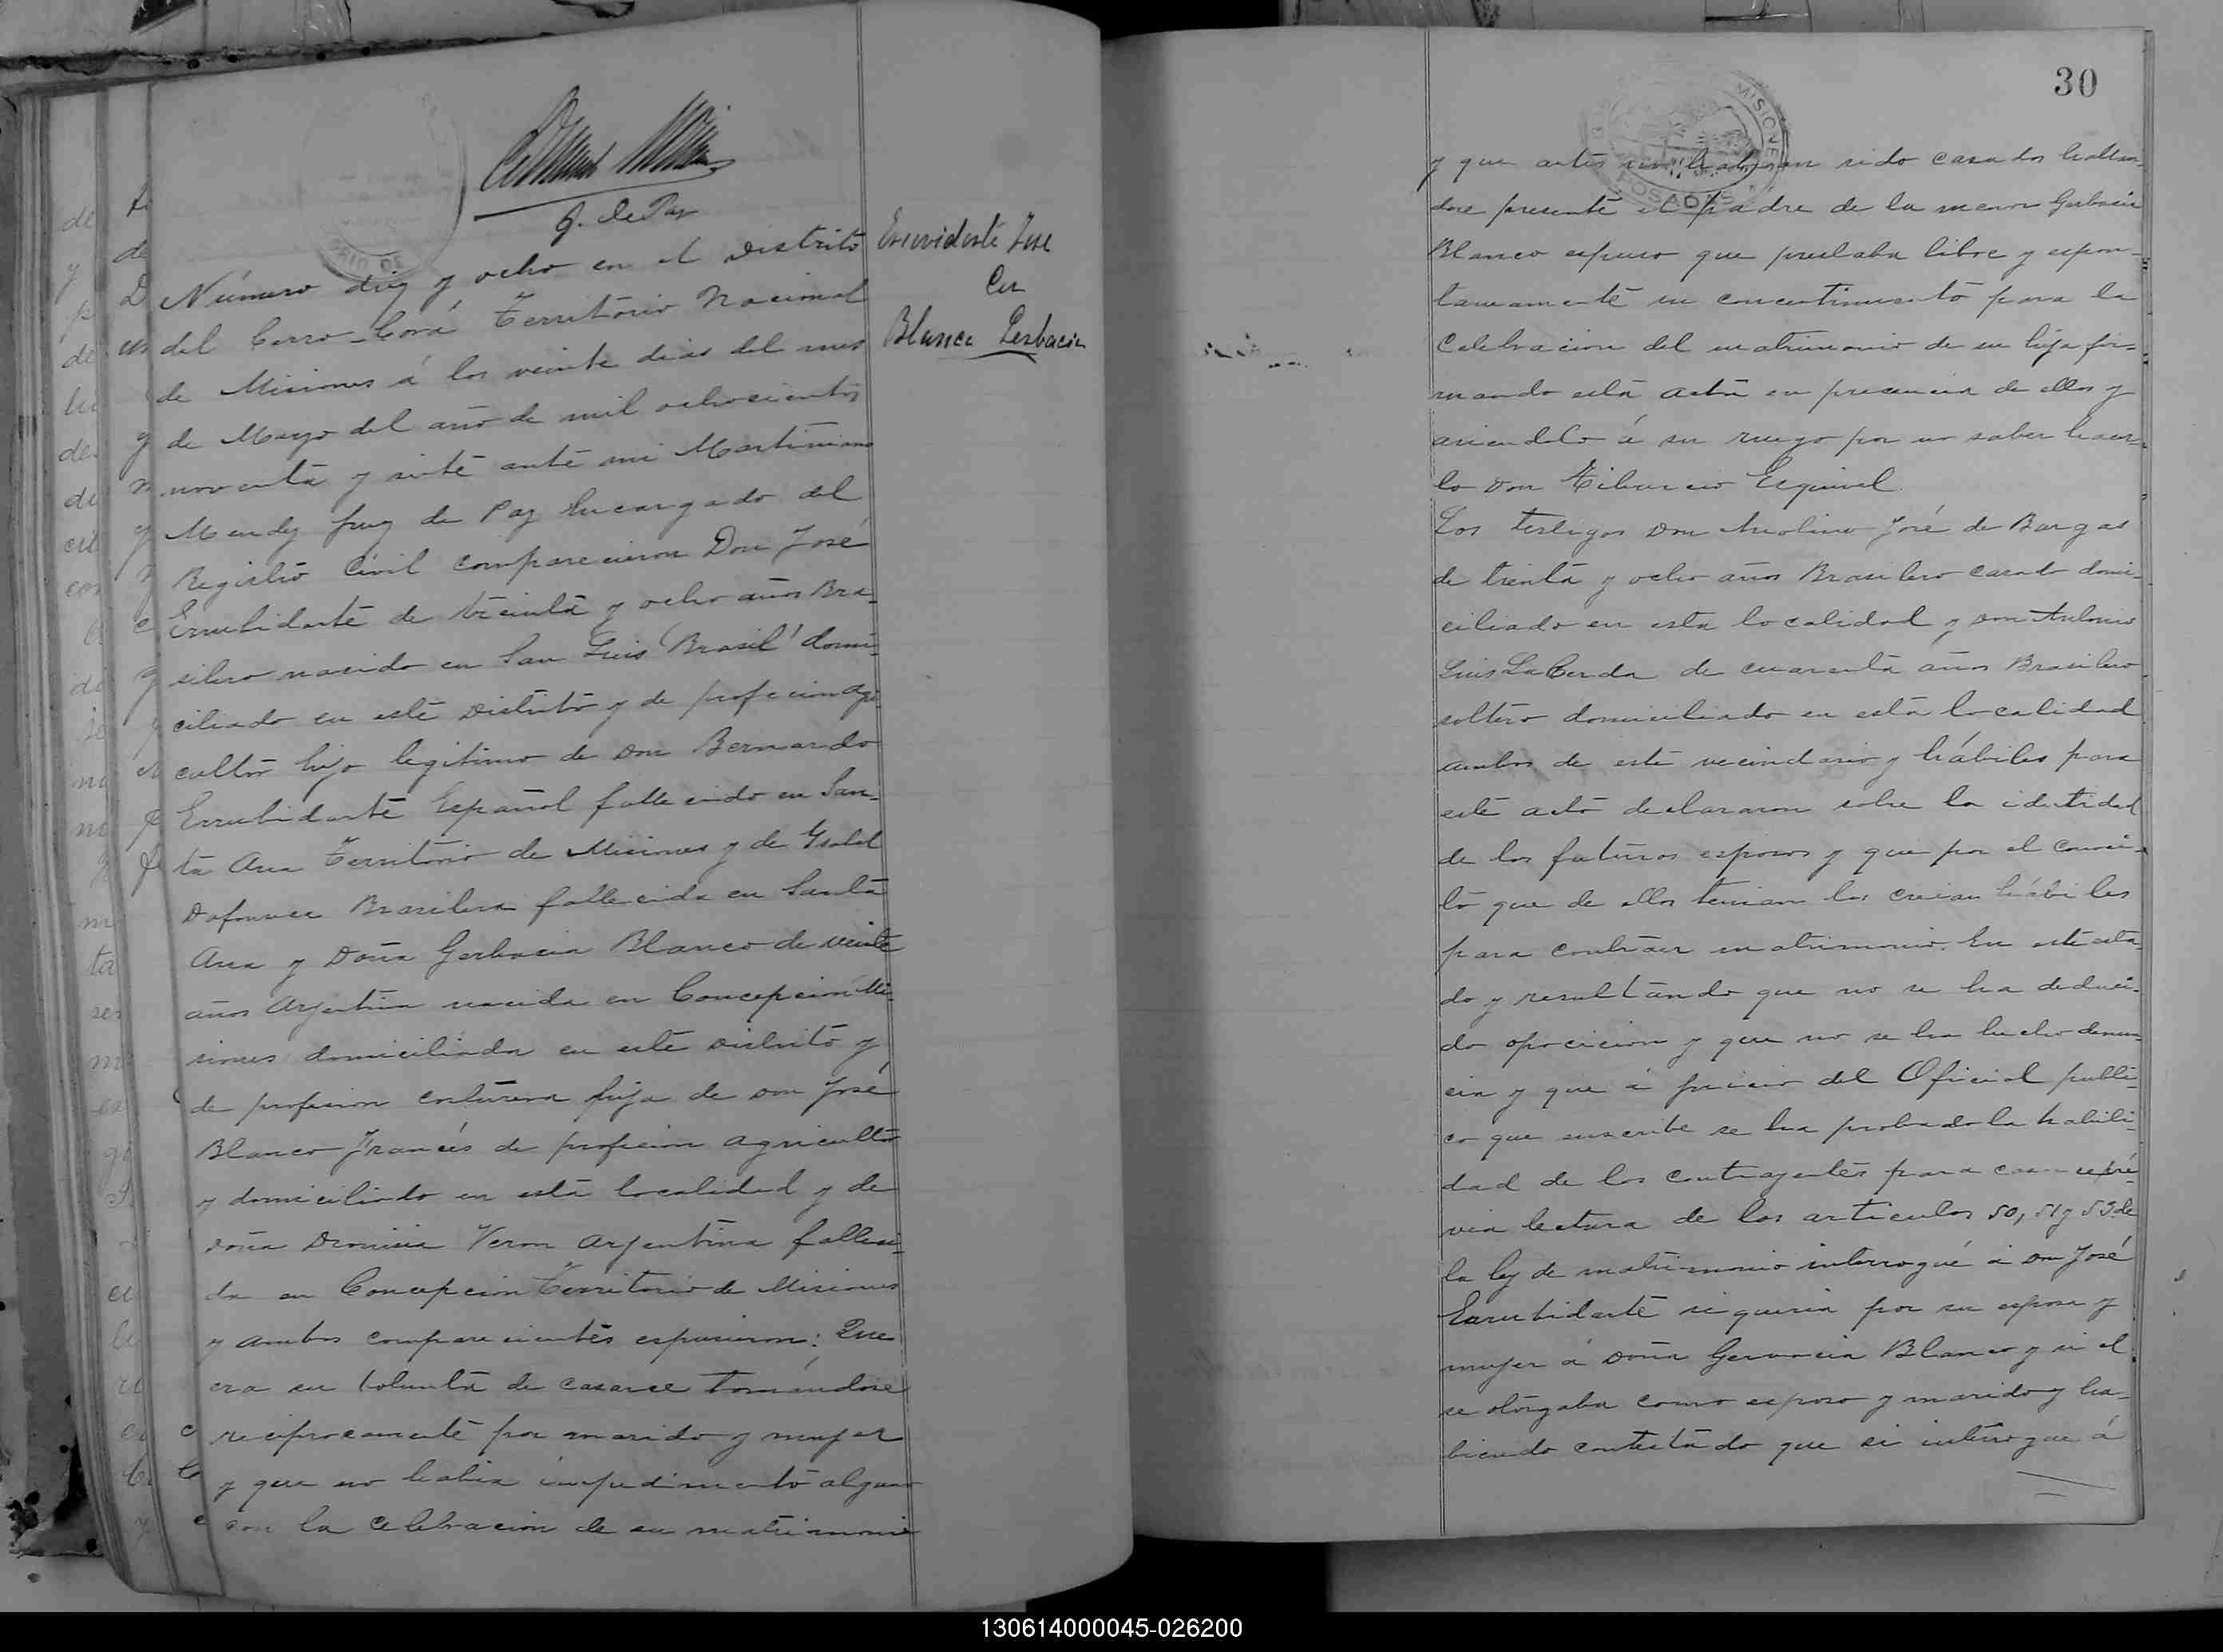 J. de Paz
Número diez y ocho en el Distrito
del Cerro-Corá Territorio Nacional
de Misiones á los veinte dias del mes
de Mayo del año de mil ochocientos
noventa y siete ante mi Martiniano
Mendez Juez de Paz Encargado del
Registro Civil comparecieron Don José
Errubidarte de treinta y ocho años Bra-
silero nacido en San Luis (Brasil) domi-
ciliado en este Distrito y de profecion agri
cultor hijo legitimo de Don Bernardo
Errubidarte Español fallecido en San-
ta Ana Territorio de Misiones y de Ysabel
Brasilera fallecida en Santa
Ana y Doña Gerbacia Blanco de veinte
años Arjentina nacida en Concepcion Mi-
siones domiciliada en este Distrito y
de profesion costurera hija de Don José
Blanco Francés de profecion agricultor
y domiciliado en esta localidad y de
Doña Dionisia Veron Arjentina falleci-
da en Concepcion Territorio de Misiones
y ambos comparecientes espusieron: Que
era su voluntá de casarce tomándose
reciprocamente por marido y mujer
y que no habia impedimento alguno
con la celebracion de su matrimonio
Blanco Gerbacia
30
MISIONES
POSADAS
y que antes no habian sido casados hallan-
dose presente el padre de la menor Gerbacia
Blanco espuso que prestaba libre y espon-
taneamente su concentimiento para la
celebracion del matrimonio de su hija fir-
mando esta acta en precencia de ellos y
aciendolo á su ruego por no saber hacer-
lo Don Tiburcio Esquivel
Los testigos Don José de Bargas
de treinta y ocho años Brasilero casado domi-
ciliado en esta localidad y Don Antonio
Luis La Cerda de cuarenta años Brasilero
soltero domiciliado en esta localidad
ambos de este vecindario y hábiles para
este acto declararon sobre la identidad
de los futuros esposos y que por el conoci-
to que de ellos tenian los creian hábiles
para contraer matrimonio. En este esta
do y resultando que no se ha deduci-
do oposicion y que no se ha hecho denun-
cia y que á juicio del Oficial publi-
co que suscribe se ha probado la habili-
dad de los contrayentes para casarce pré-
via lectura de los articulos 50, 51 y 53 de
la ley de matrimonio interrogué á Don José
Errubidarte si queria por su esposa y
mujer á Doña Gervacia Blanco y si el
se otorgaba como esposo y marido y ha-
biendo contestado que si interrogue á
130614000045-026200